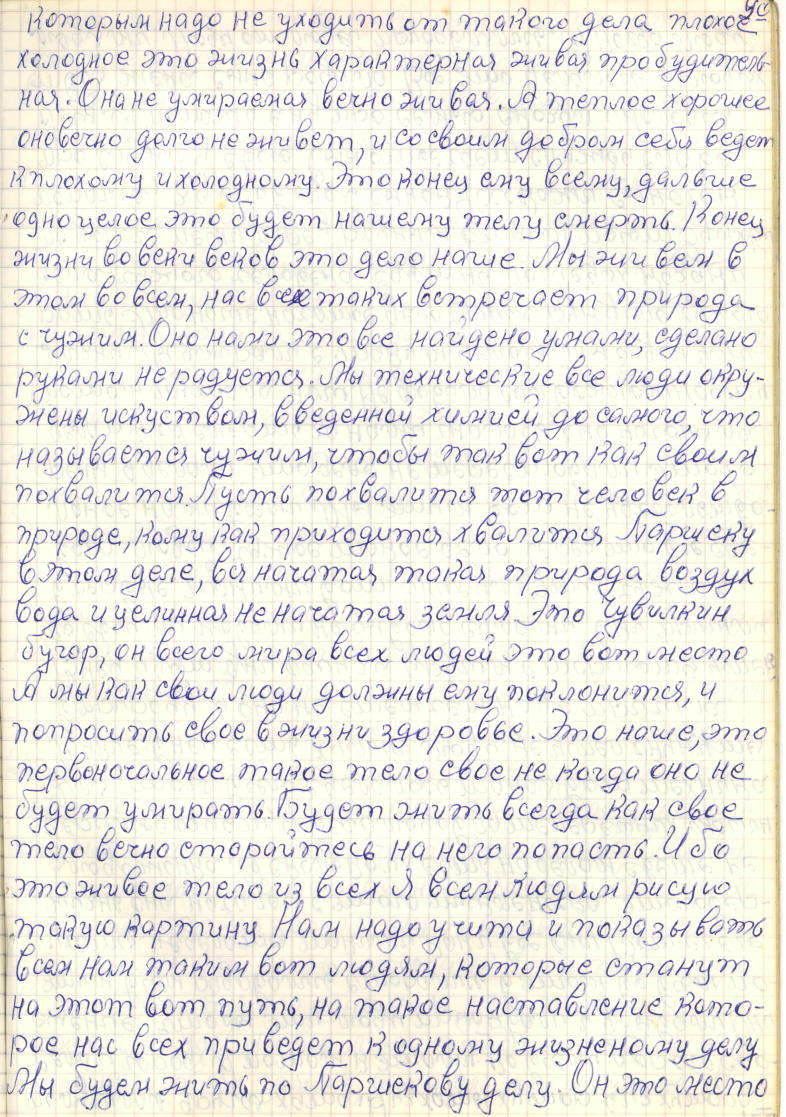 Которым надо не уходить от такого дела плохое
холодное это жизнь характерная живая пробудитель-
ная. Она не умираемая вечно живая. А теплое хорошее
оно вечно долго не живет, и со своим добром себя ведет
к плохому и холодному. Это конец ему всему, дальше
одно целое это будет нашему телу смерть. Конец
жизни во веки веков это дело наше. Мы живем в
этом во всем, нас всех таких встречает природа
с чужим. Оно нами это все найдено умами, сделано
руками не радуется. Мы технические все люди окру-
жены искуством, введенной химией до самого, что
называется чужим, чтобы так вот как своим
похвалится. Пусть похвалится тот человек в
природе, кому как приходится хвалится Паршеку
в этом деле, вся начатая такая природа воздух
вода и целинная не начатая земля. Это Чувилкин
бугор, он всего мира всех людей это вот место
А мы как свои люди должны ему поклонится, и
попросить свое в жизни здоровье. Это наше, это
первоночальное такое тело свое не когда оно не
будет умирать. Будет жить всегда как свое
тело вечно старайтесь на него попасть. Ибо
это живое тело из всех Я всем людям рисую
такую картину Нам надо учится и показывать
всем нам таким вот людям, которые станут
на этот вот путь, на такое наставление кото-
рое нас всех приведет к одному жизненому делу
Мы будем жить по Паршекову делу. Он это место